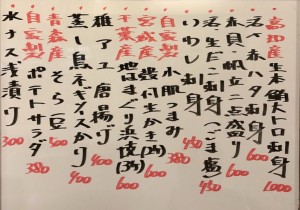 高知産 生本鮪大トロ刺身 1000
活〆赤ハタ刺身 600
赤貝・帆立二点盛り 600
活〆生だこ刺身(ごま塩) 480
いわし刺身 480
自家製 小肌つまみ 380
宮城産 殻付生かき(2ヶ) 600
千葉産 地はまぐり浜焼(3ヶ) 600
稚アユ唐揚げ 400
蒸し鳥ネギ 400
青森産 そら豆 400
自家製 ポテトサラダ 380
水ナス浅漬り 300